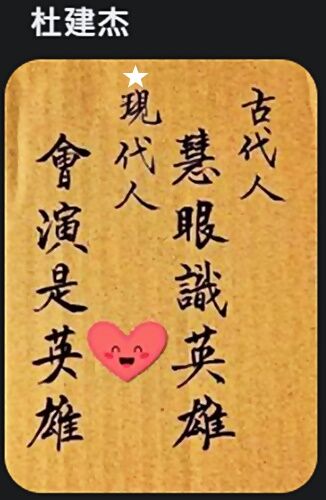 杜建杰
古代人
慧眼識英雄
現代人
會演是英雄